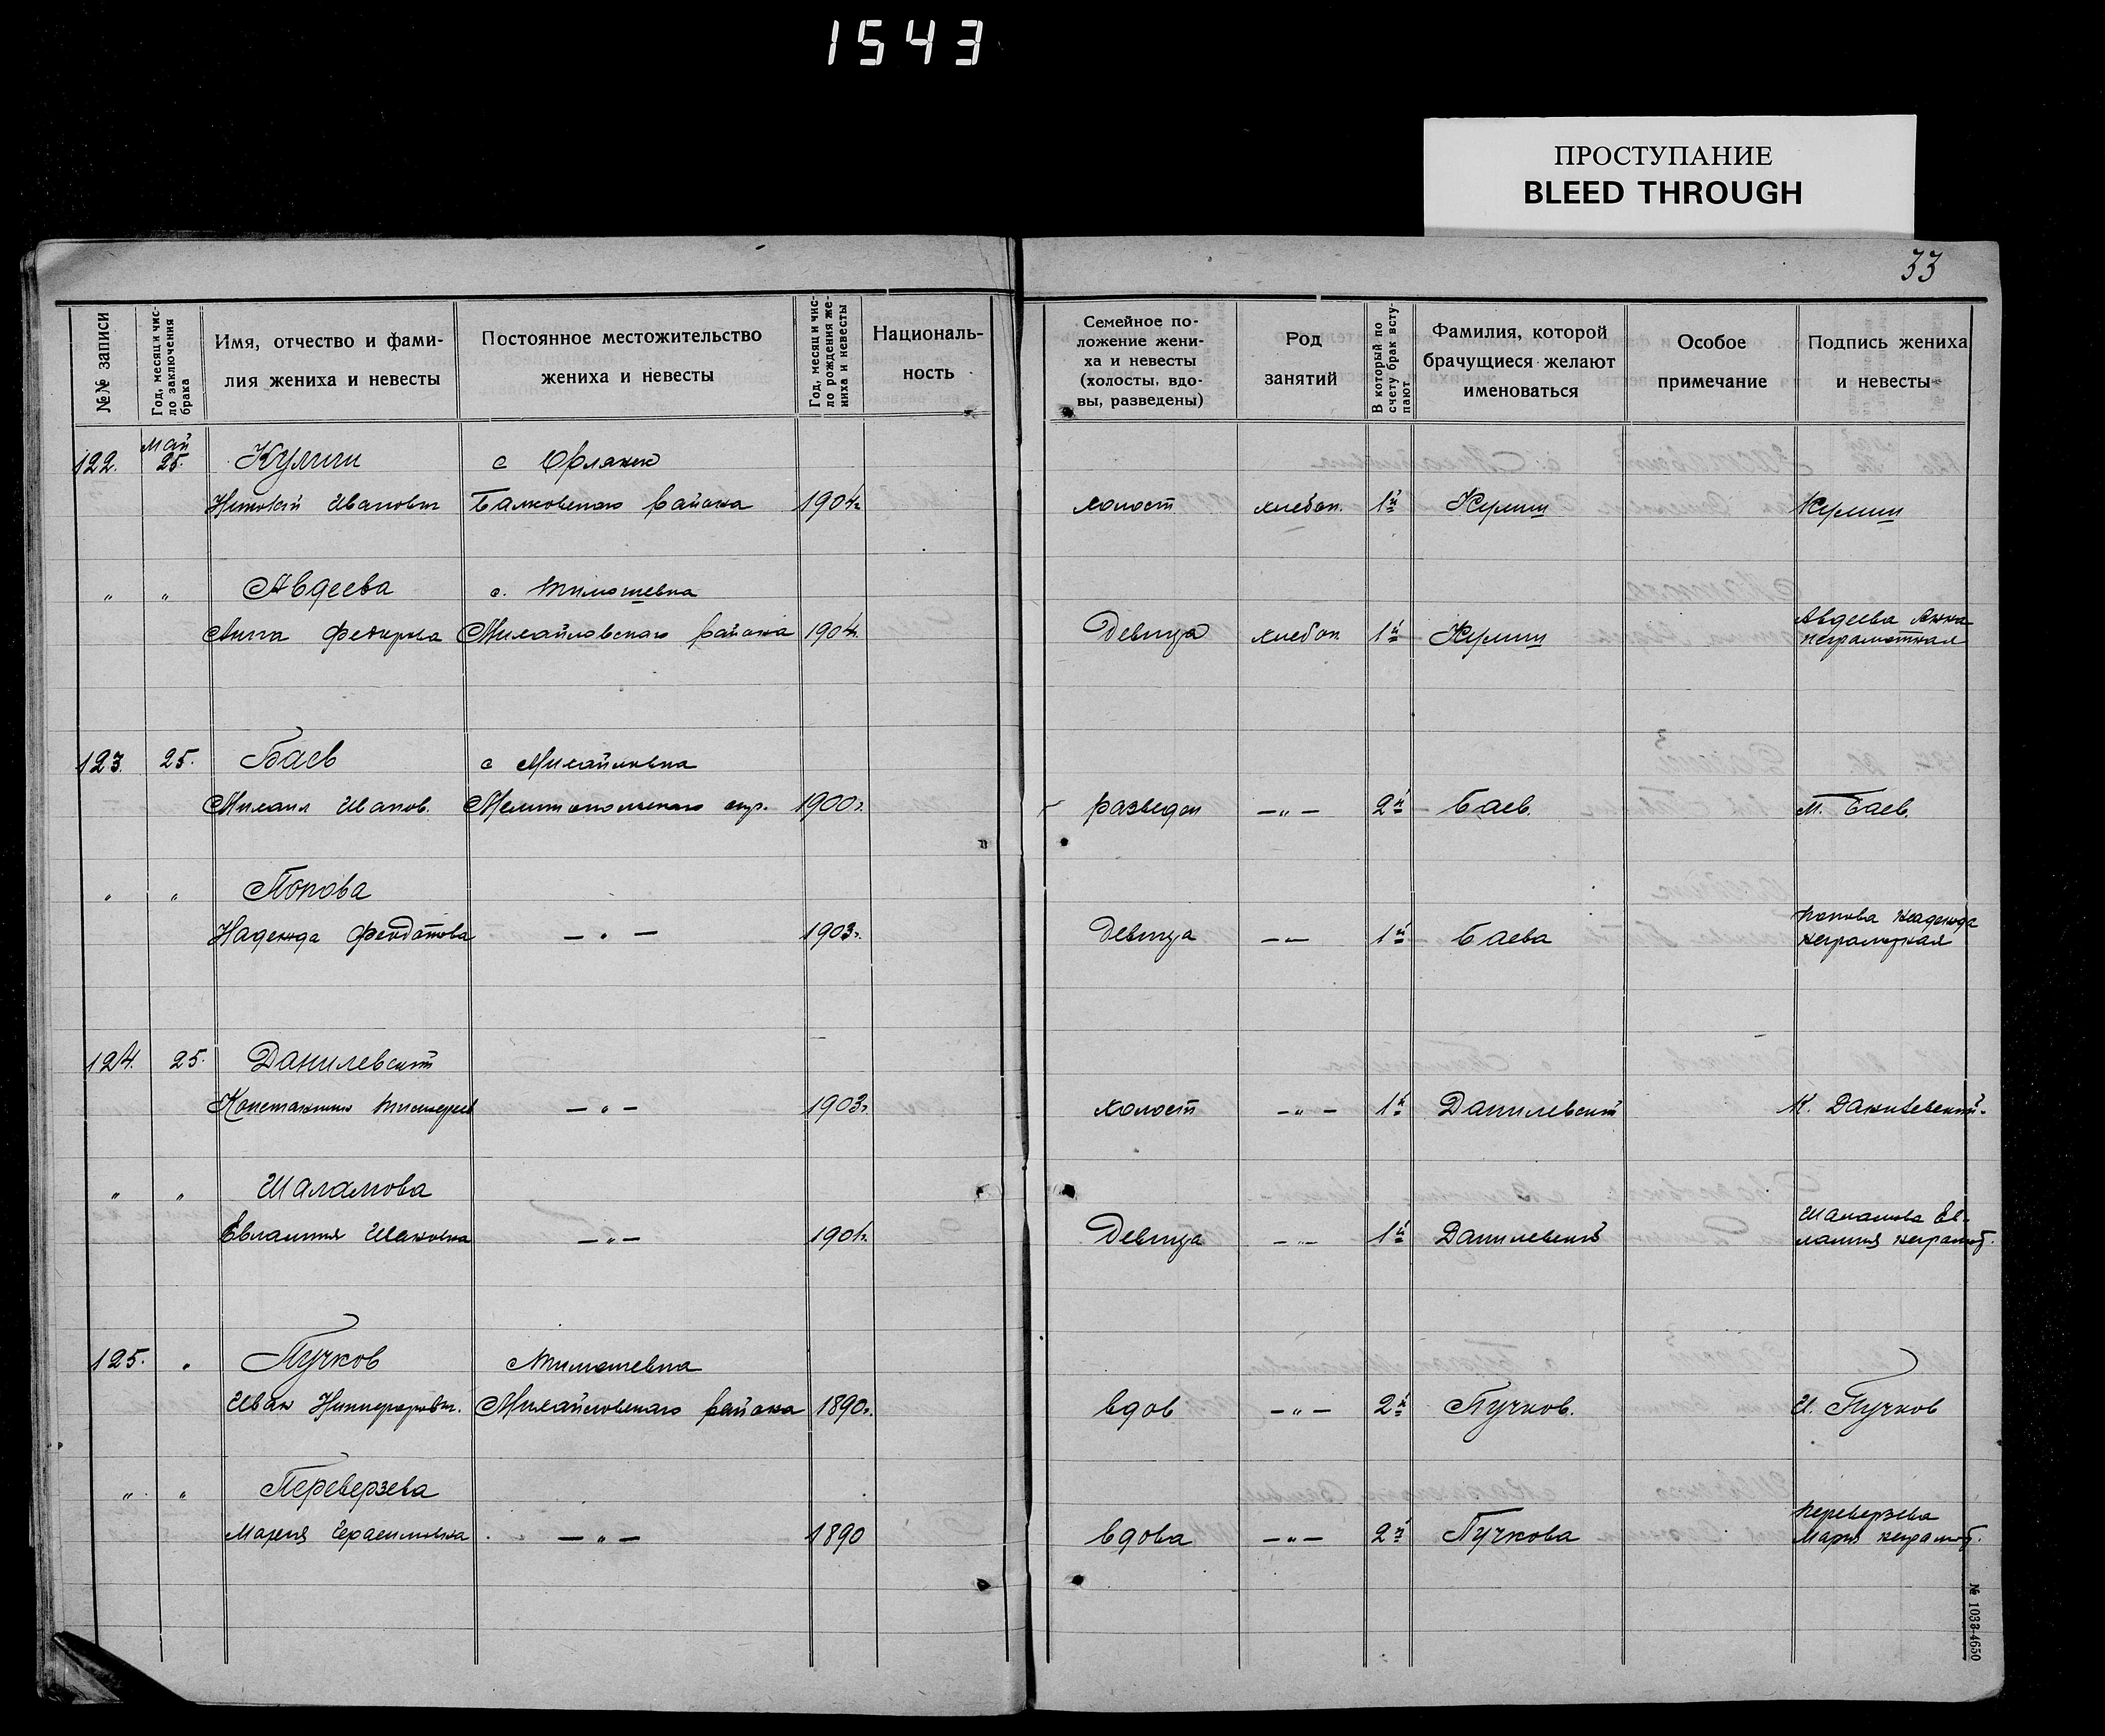 1543
ПРОСТУПАНИЕ
BLEED THROUGH
33
№№ записи
Год, месяц и чис-
ло заключения
брака
Имя, отчество и фами-
лия жениха и невесты
Постоянное местожительство
жениха и невесты
Год, месяц и чис-
ло рождения же-
ниха и невесты
Националь-
ность
Семейное по-
ложение жени-
ха и невесты
(холосты, вдо-
вы, разведены)
Род
занятий
В который по
счету брак всту-
пают
Фамилия, которой
брачущиеся желают
именоваться
Особое
примечание
Подпись жениха
и невесты
Май
122. 25. Кулиш с Орлянск
Иванович Балковского района 1904г. холост хлебоп. 1й Кулиш Кулиш
" " Авдеева с. Тимошевка
Авдеева Анна
Анна Михайловского района 1904г. Девица хлебоп. 1й Кулиш неграмотная
123. 25. Баев с Михайловка
Михаил Иванов. Мелитопольского окр. 1900г. разведен —"— 2й Баев. М. Баев.
" " Попова
Попова Надежда
Надежда Феодотова —"— 1903г. Девица —"— 1й Баева неграмотная
124. 25. Данилевский
Константин —"— 1903г. холост —"— 1й Данилевский К. Данилевский.
" " Шаламова
Шаламова Ев-
Евлампия —"— 1904г. Девица —"— 1й лампия неграмот.
125. " Пучков Тимошевка
Иван Михайловского района 1890г. вдов —"— 2й Пучков. И. Пучков
" " Переверзева
Переверзева
Мария Герасимовна —"— 1890 вдова —"— 2й Пучкова Мария неграмот.
№ 1033-4650